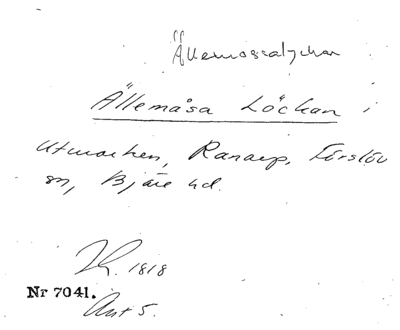 Ällemossalyckan
Ällemåsa Löckan i
Utmarken, Ranarp, Förslöv
sn, Bjäre hd.
1818
Nr 7041.
Akt 5.